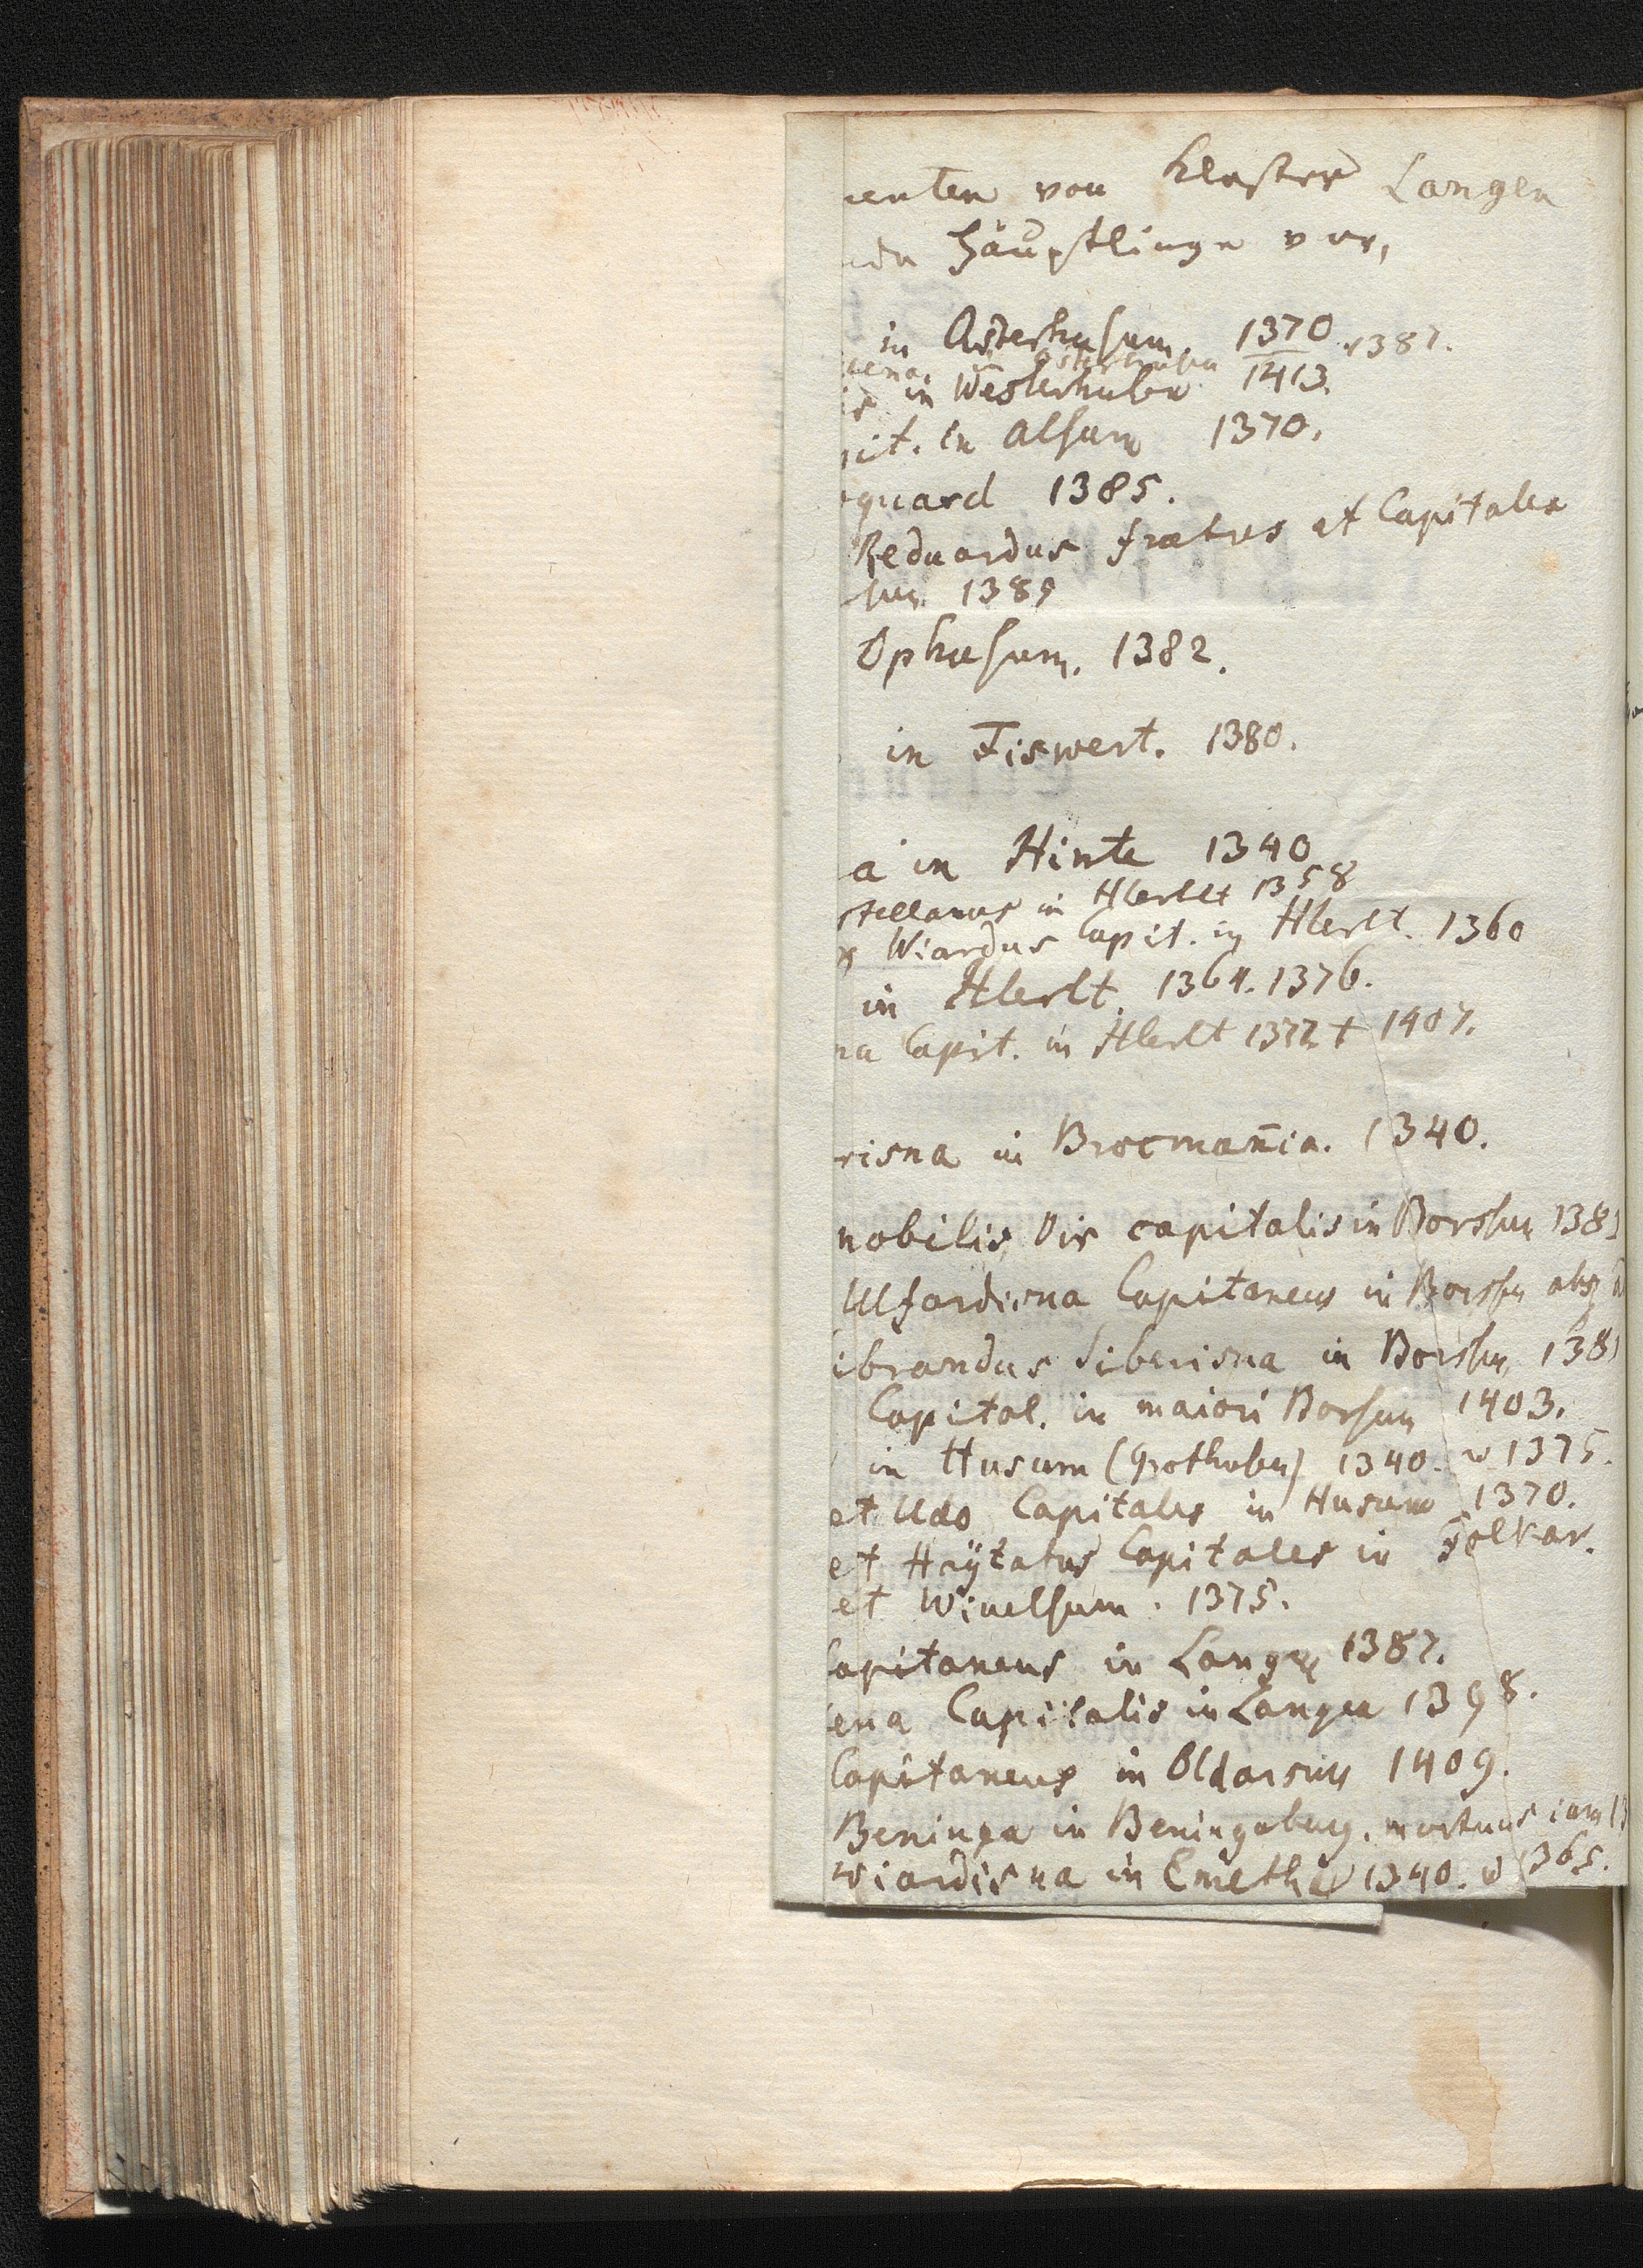 enten von Kloster Langen
nde Häuptlinge vor,
in Asterhusum. 1370. 1387.
uena, in Osterhusen
is in Westerhusen 1413.
pit. in Alsum 1370.
quard 1385.
Reduardus fratres et Capitales
sum 1385
Ophusum. 1382.
in Fiswert. 1380.
a in Hinte 1340
stellanus in Hlerlt 1358
Wiardus Capit. in Hlerlt. 1360
in Hlerlt. 1364. 1376.
na Capit. in Hlerlt 1372 † 1407.
risna in Brocmañia. 1340.
nobilis Vir capitalis in Borssum 1381
Ulfardisna Capitaneus in Borssum
ibrandus Siberisna in Borssum 138
Capital. in maiori Borsum 1403.
in Husum (Grothusen) 1340. u 1375.
et Udo Capitales in Husum 1370.
et Haÿtatus Capitales in Folkar.
et Winelsum. 1375.
Capitaneus in Langen 1387.
ena Capitalis in Langen 1398.
Capitaneus in Oldarsum 1409.
Beninga in Beningaburg. mortuus iam 13
wiardisna in Emetha 1340. u 1365.